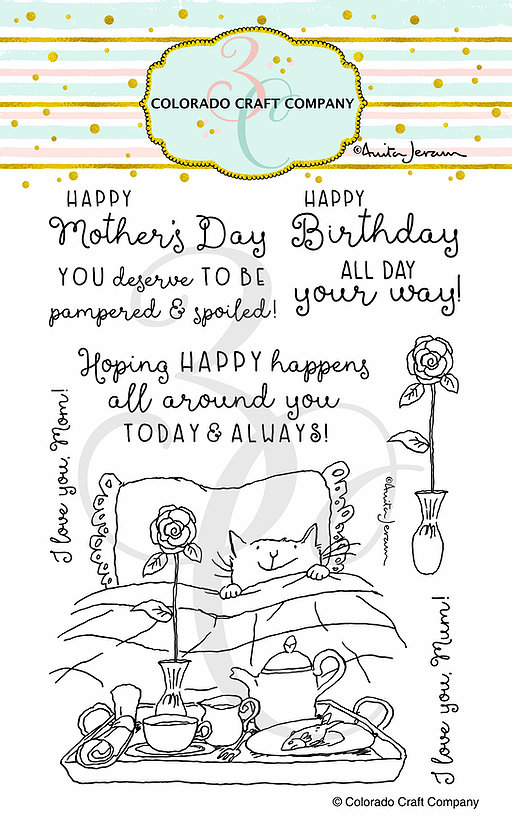 3C
COLORADO CRAFT COMPANY
©Anita Jeram
HAPPY
Mother's Day
YOU deserve TO BE
pampered & spoiled!
HAPPY
Birthday
ALL DAY
your way!
Hoping HAPPY happens
all around you
TODAY & ALWAYS!
I love you, Mom!
©Anita Jeram
I love you, Mum!
3C
© Colorado Craft Company